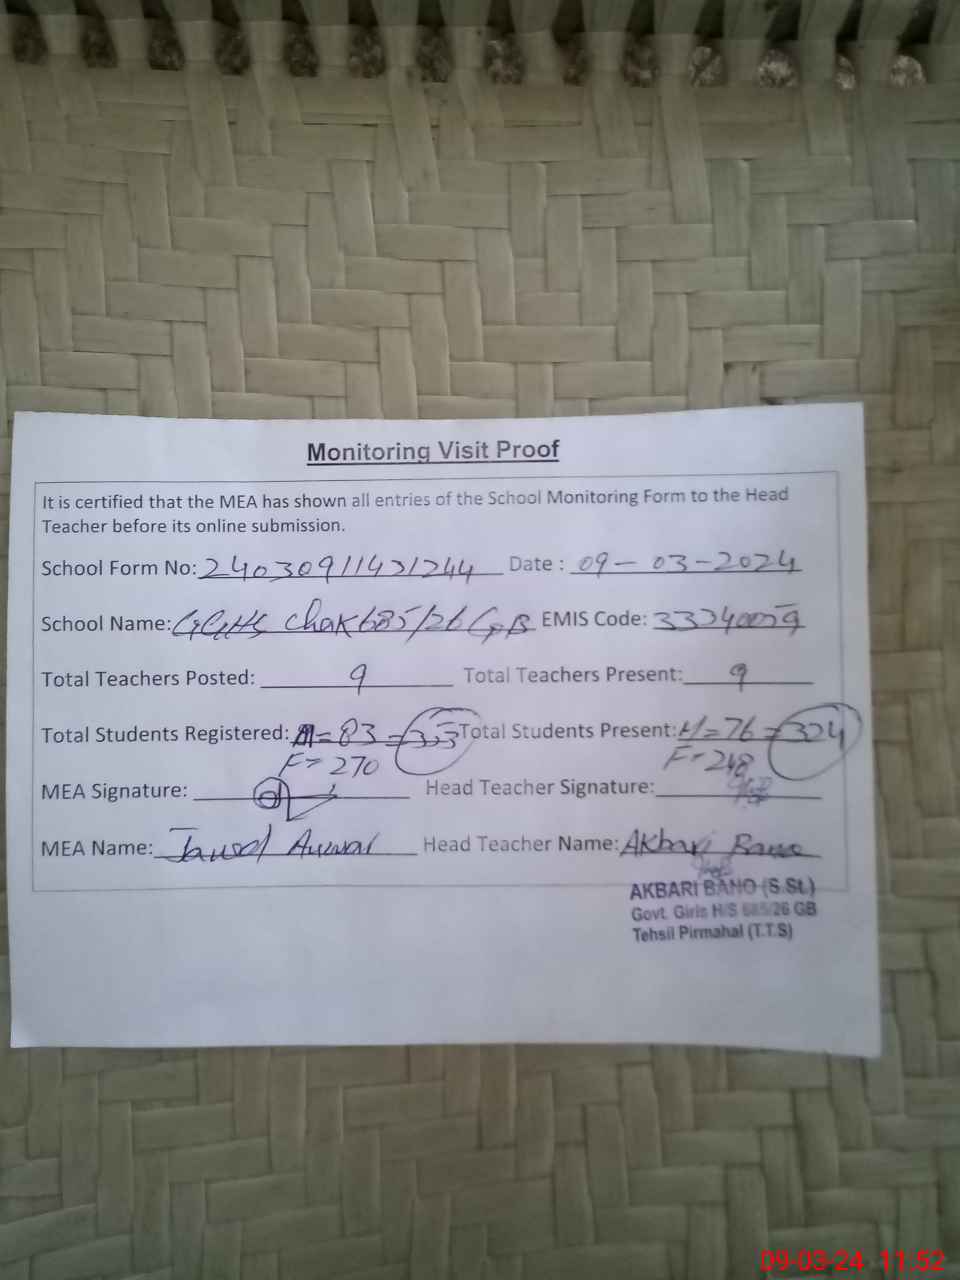 Monitoring Visit Proof
It is certified that the MEA has shown all entries of the School Monitoring Form to the Head
Teacher before its online submission.
School Form No: 24030911431244 Date : 09-03-2024
School Name: GGHS Chak 685/26 GB EMIS Code: 33340059
Total Teachers Posted: 9 Total Teachers Present: 9
Total Students Registered: M=83 =353 Total Students Present: M=76 =324
F=270 F=248
MEA Signature: Head Teacher Signature:
MEA Name: Anwar Head Teacher Name: Akbari Bano
AKBARI BANO (S.St.)
Govt. Girls H/S 685/26 GB
Tehsil Pirmahal (T.T.S)
09-03-24 11:52